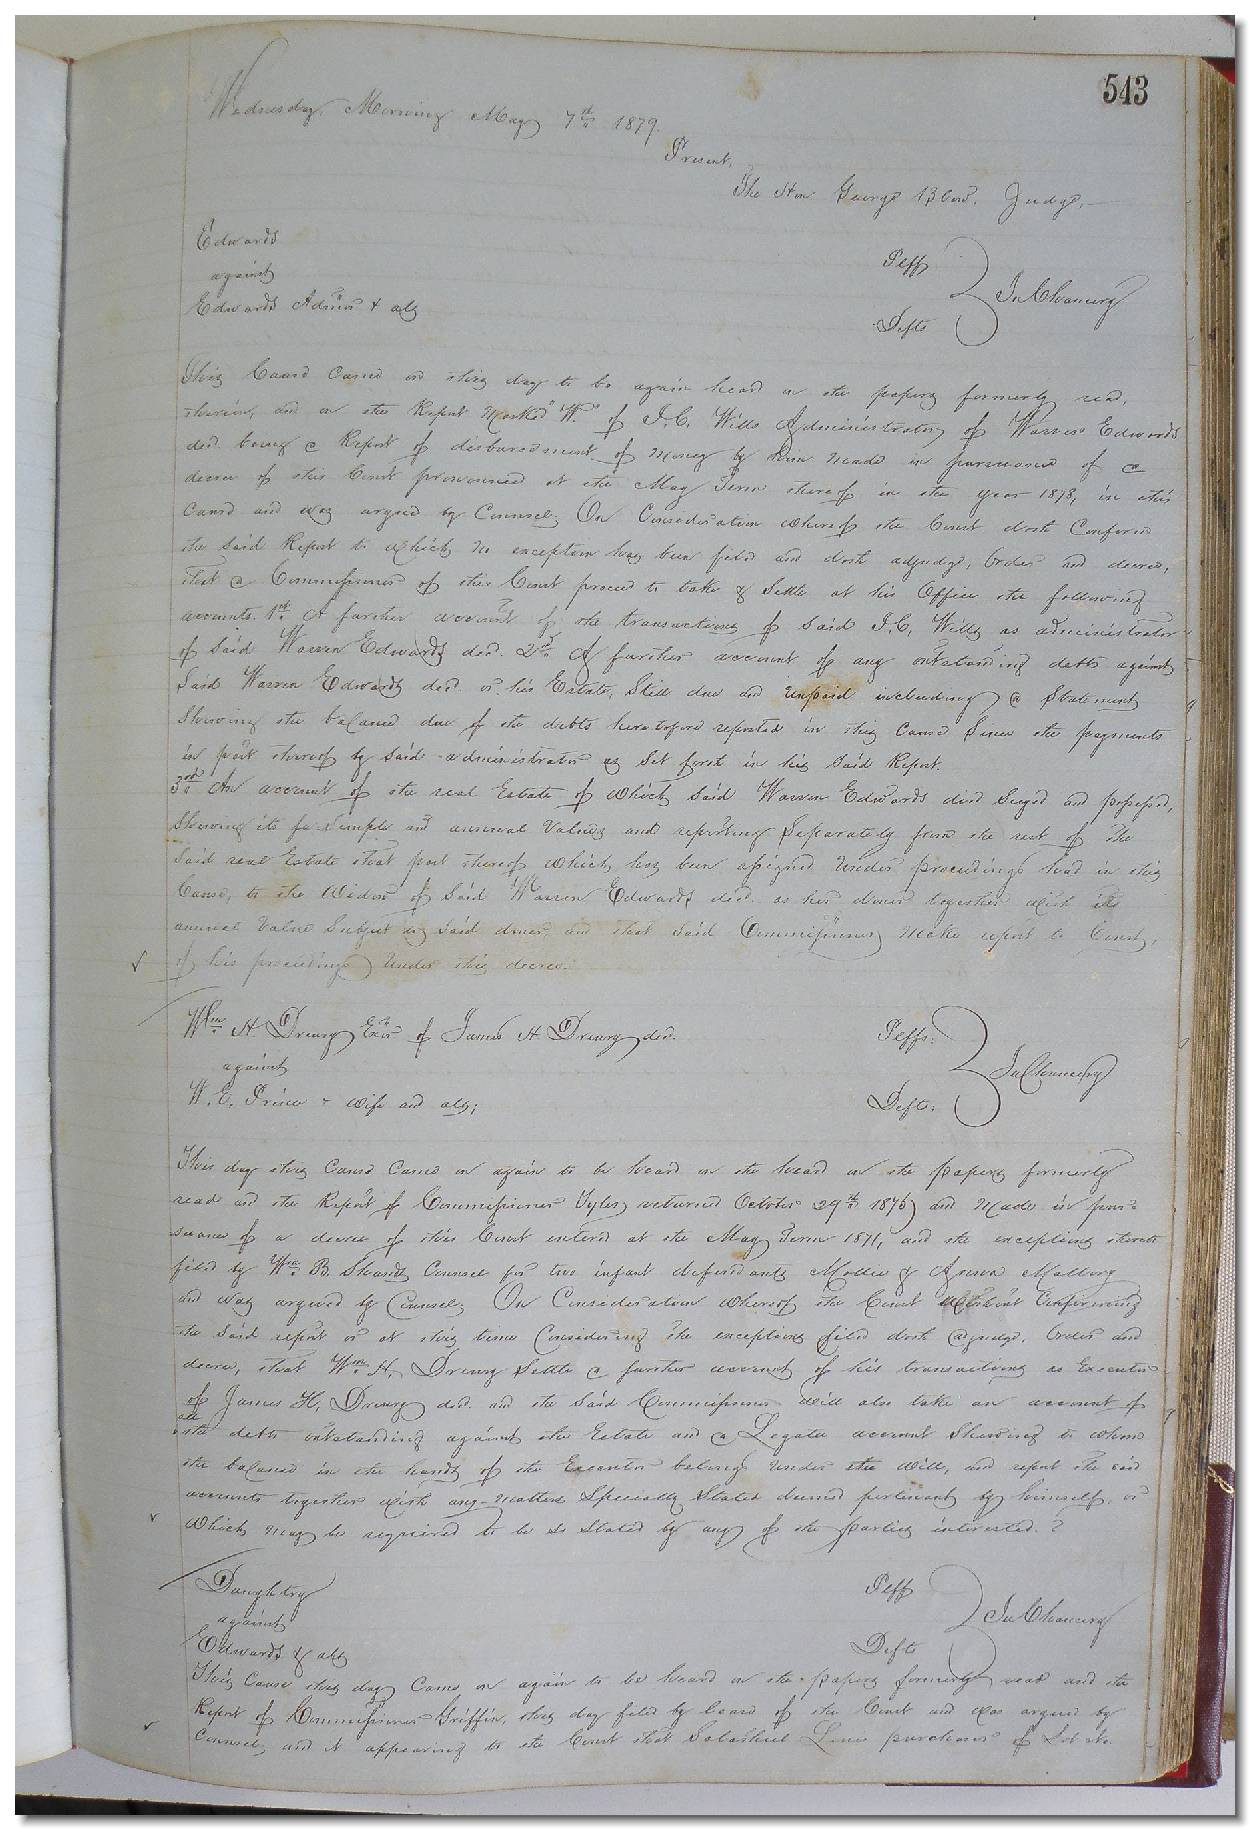 543
Wednesday Morning May 7th 1879.
Present,
The Hon George Blow, Judge,
Edwards Plff
against In Chancery
Edwards Admr & als Defts
This Cause came on this day to be again heard on the papers formerly read,
therein, and on the Report Marked "W." of J. C. Wills Administrator of Warren Edwards
decd. being a Report of disbursement of Money by him made in pursuance of a
decree of this Court pronounced at the May Term thereof in the year 1878, in this
Cause and was argued by Counsel; On Consideration whereof the Court doth Confirm
the said Report to which no exception has been filed and doth adjudge, Order and decree,
that a Commissioner of this Court proceed to take & settle at his Office the following
accounts. 1st. A further account of the transactions of said J. C. Wills as administrator
of said Warren Edwards decd. 2nd. A further account of any outstanding debts against
Said Warren Edwards decd. or his Estate, Still due and unpaid including a Statement
Showing the balance due of the debts heretofore reported in this Cause Since the payments
in part thereof by said administrator as Set forth in his said Report.
3rd An account of the real Estate of which said Warren Edwards died Seized and possessed,
Showing its fee Simple and annual Values and reporting Separately from the rest of the
Said real Estate that part thereof which has been assigned under proceedings had in this
Cause, to the Widow of Said Warren Edwards decd. as her dower together with its
annual Value Subject to said dower and that said Commissioner Make report to Court,
of his proceedings under this decree.
Wm H Drewry Exor of James H Drewry decd. Plffs.
against In Chancery
W. E. Prince & wife and als; Defts.
This day this Cause Came on again to be heard on the heard on the papers formerly
read and the Report of Commissioner Tyler returned October 29th 1876 and Made in pur-
suance of a decree of this Court entered at the May Term 1871, and the exceptions thereto
filed by Wm. B. Shands Counsel for two infant defendants Mollie & Mallory
and was argued by Counsel; On Consideration whereof the Court without Confirming
the said report or at this time Considering the exceptions filed doth adjudge, Order and
decree, that Wm. H. Drewry Settle a further account of his transactions as Executor
of James H. Drewry decd. and the said Commissioner will also take an account of
all
the debts outstanding against the Estate and a Legatee account Showing to whom
the balance in the hands of the Executor belongs under the Will, and report the said
accounts together with any Matters Specially Stated deemed pertinent by himself, or
which may be required to be so Stated by any of the parties interested.
Daughtry Plff
against In Chancery
Edwards & als Defts
This Cause this day Came on again to be heard on the papers formerly read and the
Report of Commissioner Griffin, this day filed by leave of the Court and was argued by
Counsel, and it appearing to the Court that Salathiel Lewis purchaser of Lot No.